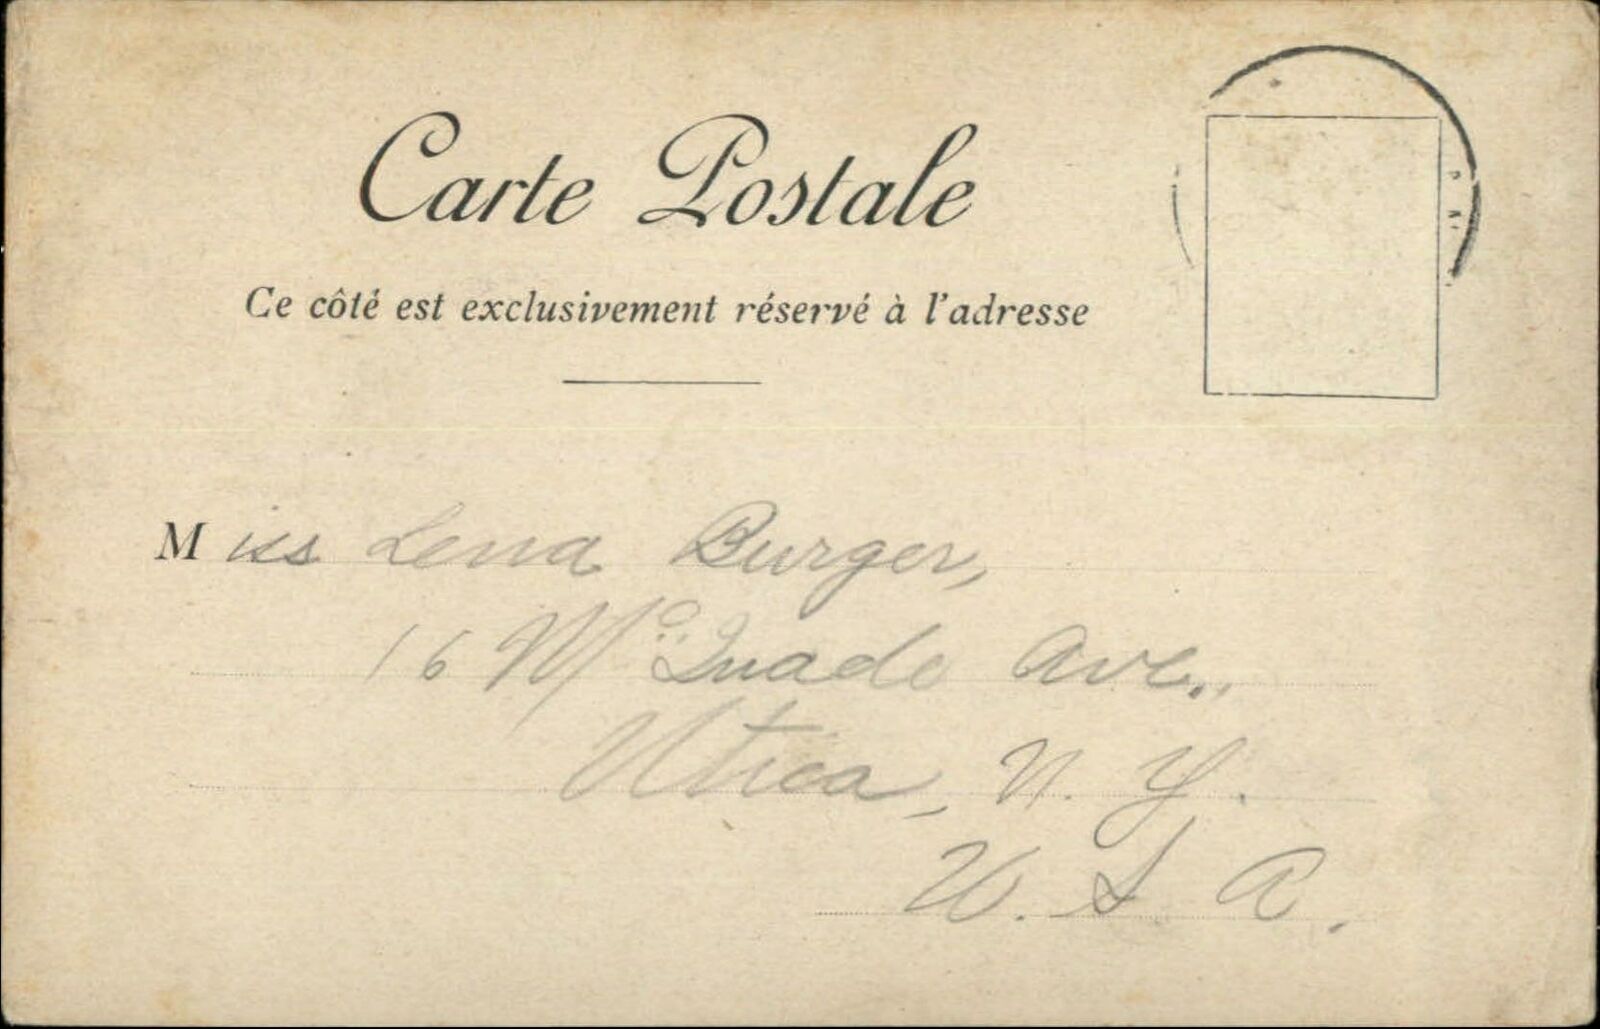 Carte Postale
Ce côté est exclusivement réservé à l'adresse
Miss Lena Burger,
16 McQuade Ave.,
Utica, N. Y.
U. S. A.